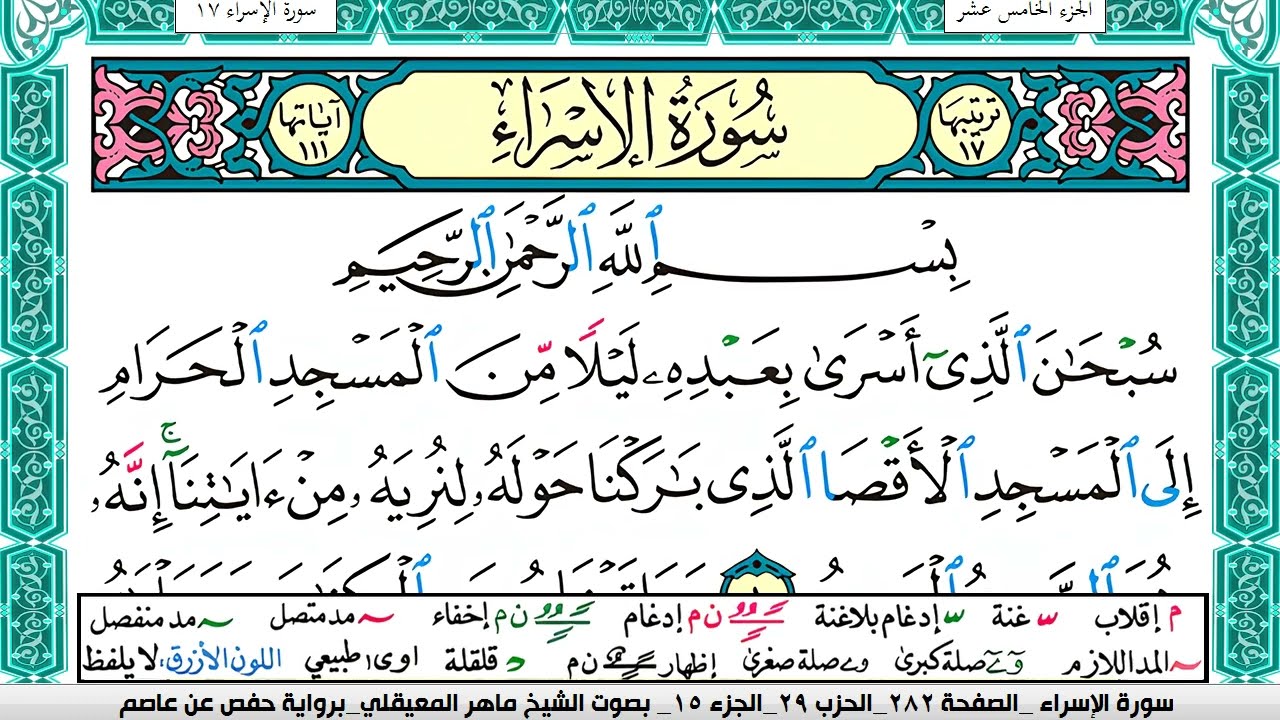 الجزء الخامس عشر
سورة الإسراء ١٧
ترتيبها ١٧
سُورَةُ الإِسْرَاءِ
آيَاتها ١١١
بِسْمِ ٱللَّهِ ٱلرَّحْمَٰنِ ٱلرَّحِيمِ
سُبْحَٰنَ ٱلَّذِىٓ أَسْرَىٰ بِعَبْدِهِۦ لَيْلًا مِّنَ ٱلْمَسْجِدِ ٱلْحَرَامِ
إِلَى ٱلْمَسْجِدِ ٱلْأَقْصَا ٱلَّذِى بَٰرَكْنَا حَوْلَهُۥ لِنُرِيَهُۥ مِنْ ءَايَٰتِنَآ ۚ إِنَّهُۥ
م إقلاب س غنة س إدغام بلاغنة ن م إدغام ن م إخفاء ~ مد متصل ~ مد منفصل
~ المد اللازم وۤ ےۤ صلة كبرى و ے صلة صغرى إظهار ن م د قلقلة ا و ى طبيعي اللون الأزرق، لا يلفظ
سورة الإسراء _الصفحة ٢٨٢_الحزب ٢٩_الجزء ١٥_ بصوت الشيخ ماهر المعيقلي_برواية حفص عن عاصم